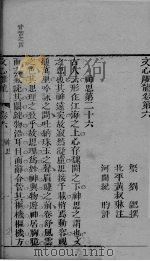 文心雕龍卷第六
梁 劉勰 撰
北平黃叔琳注
河間紀昀評
神思第二十六
古人云形在江海之上心存魏闕之下神思之謂也文
之思也其神遠矣故寂然凝慮思接千載悄焉動容視
通萬里吟詠之間吐納珠玉之聲眉睫之前卷舒風雲
之色其思理之致乎故思理爲妙神與物遊神居胸臆
而志氣統其關鍵物沿耳目而辭令管其樞機樞機方
文心雕龍 卷六